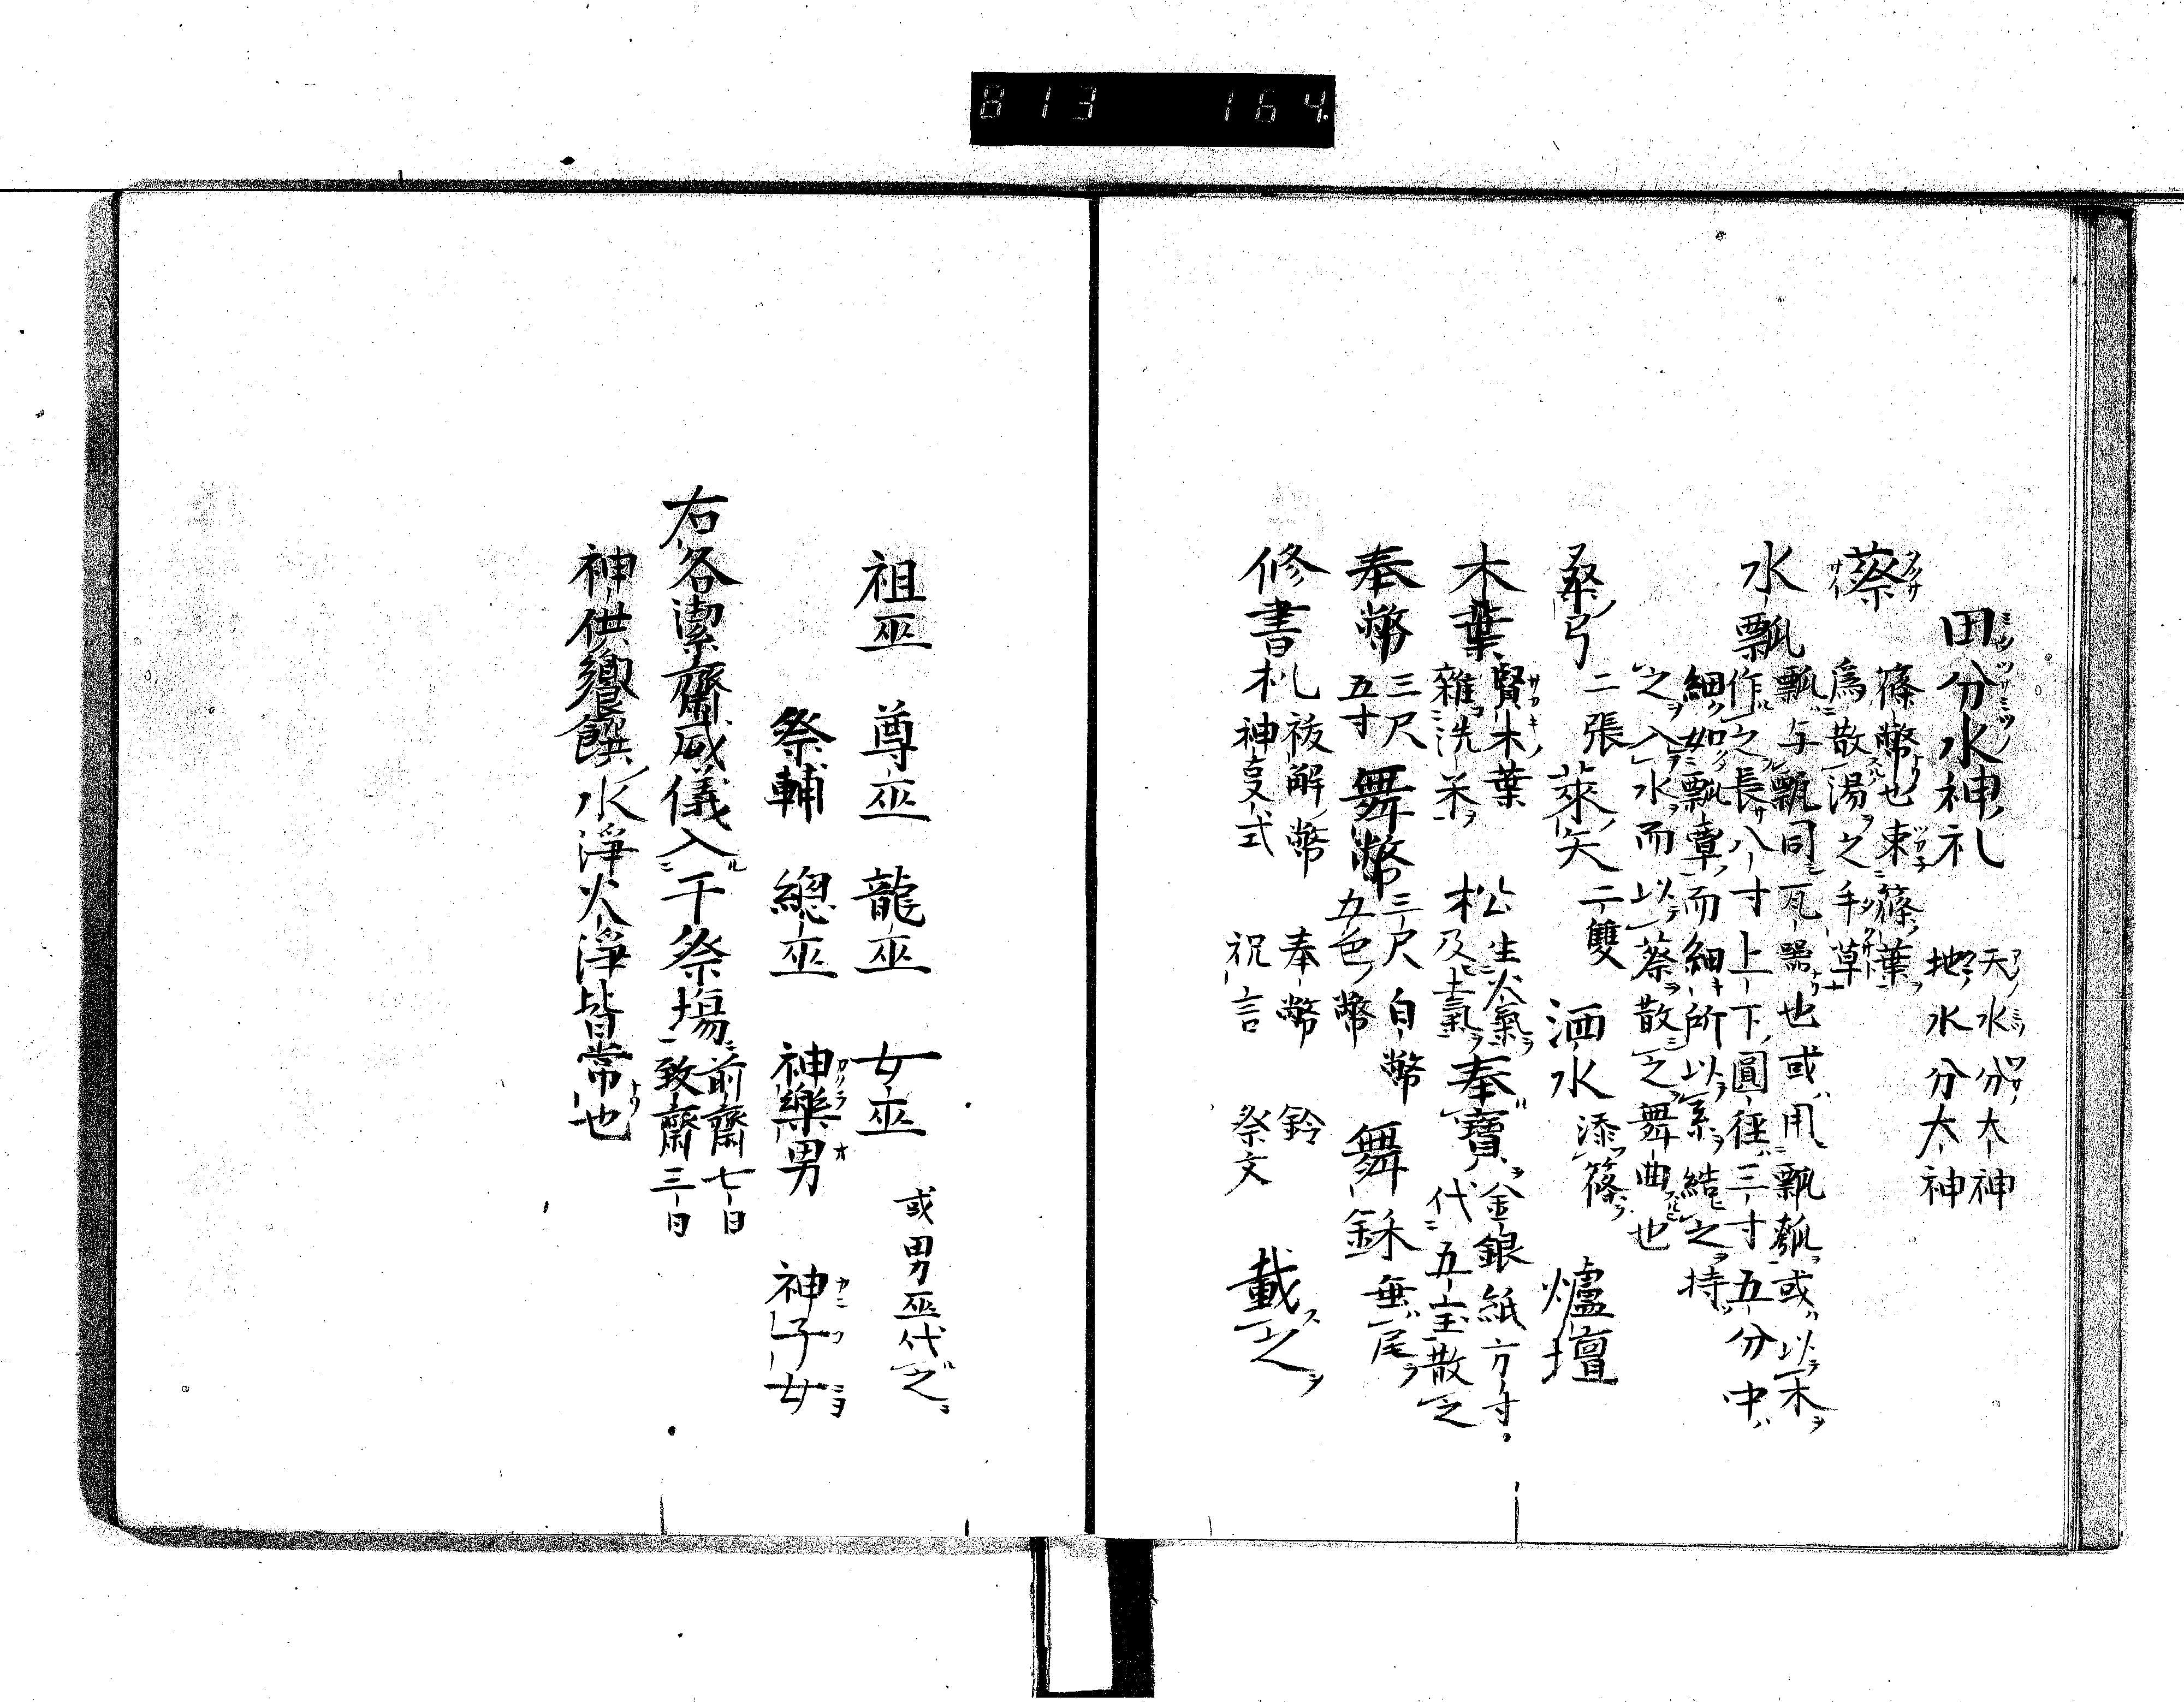 813 164
田分水神礼 天水分大神
地水分大神
蔡 篠幣也束篠葉
為散湯之手草
水瓢 瓢与瓢同瓦器也或用瓢瓠或以木
作之長八寸上下圓徑三寸五分中
細如瓢章而細所以糸結之持
之入水而以蔡散之舞曲也
桑弓 二張 萊矢 二雙 洒水 添篠 爐壇
木葉 賢木葉
雜洗米 松 生火氣
及土氣 奉寶 金銀紙方寸
代五宝散之
奉幣 三尺
五寸 舞幣 三尺白幣
五色幣 舞釆 垂尾
修書 札祓解幣 奉幣 鈴
神変式 祝言 祭文 載之
祖巫 尊巫 龍巫 女巫 或男巫代之
祭輔 總巫 神樂男 神子女
右各潔齋威儀入于祭場 前齋七日
致齋三日
神供饗饌水淨火淨皆常也